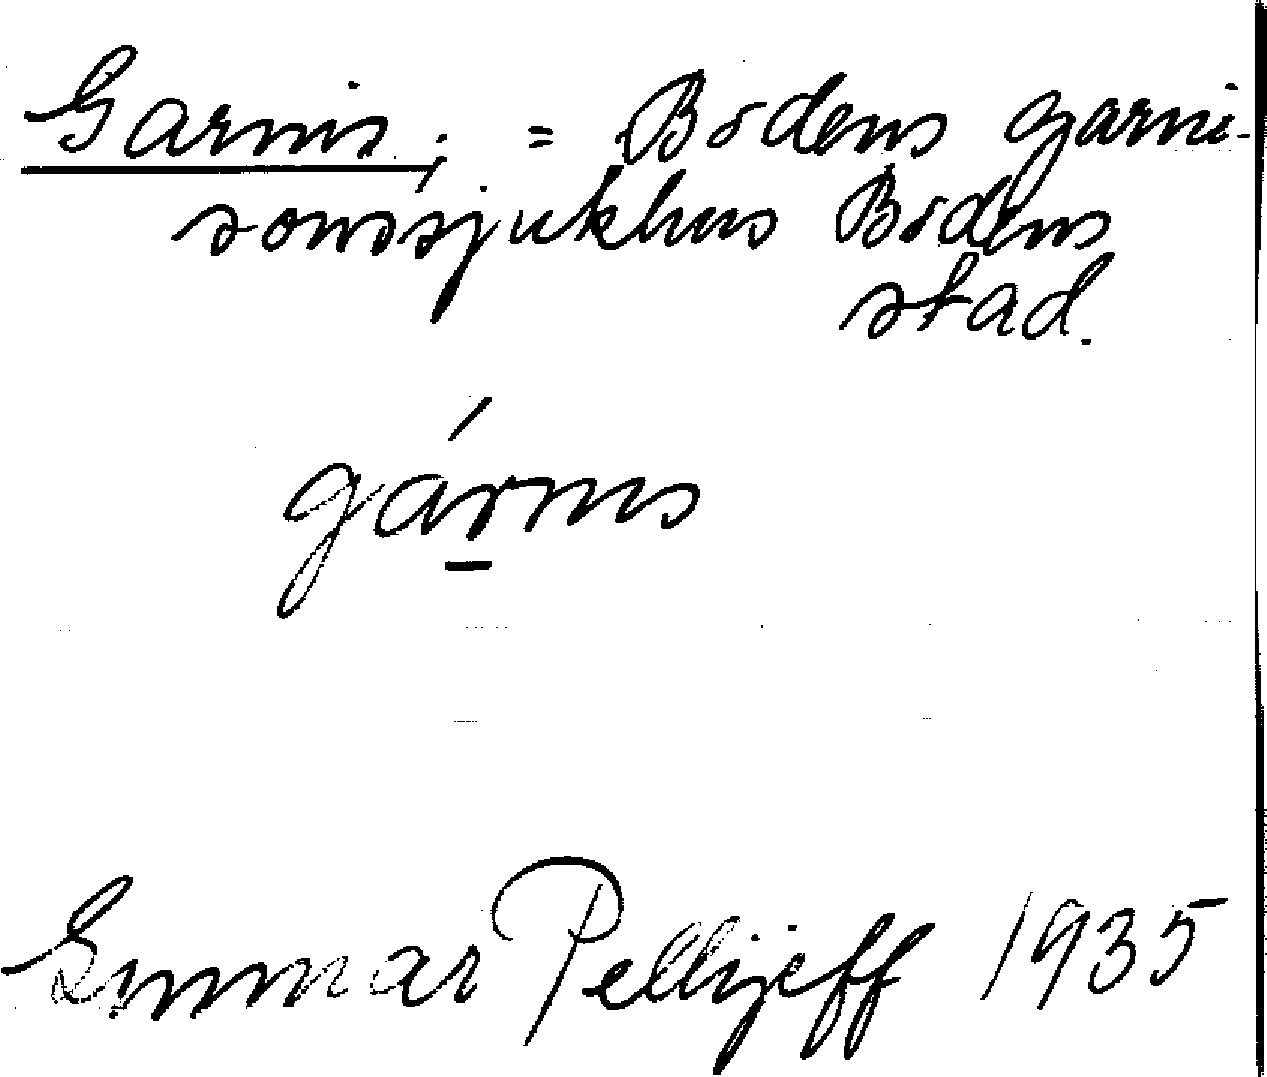 Garnis; = Bodens garni-
sonssjukhus Bodens
stad.
gárnis
Gunnar Pellijeff 1935